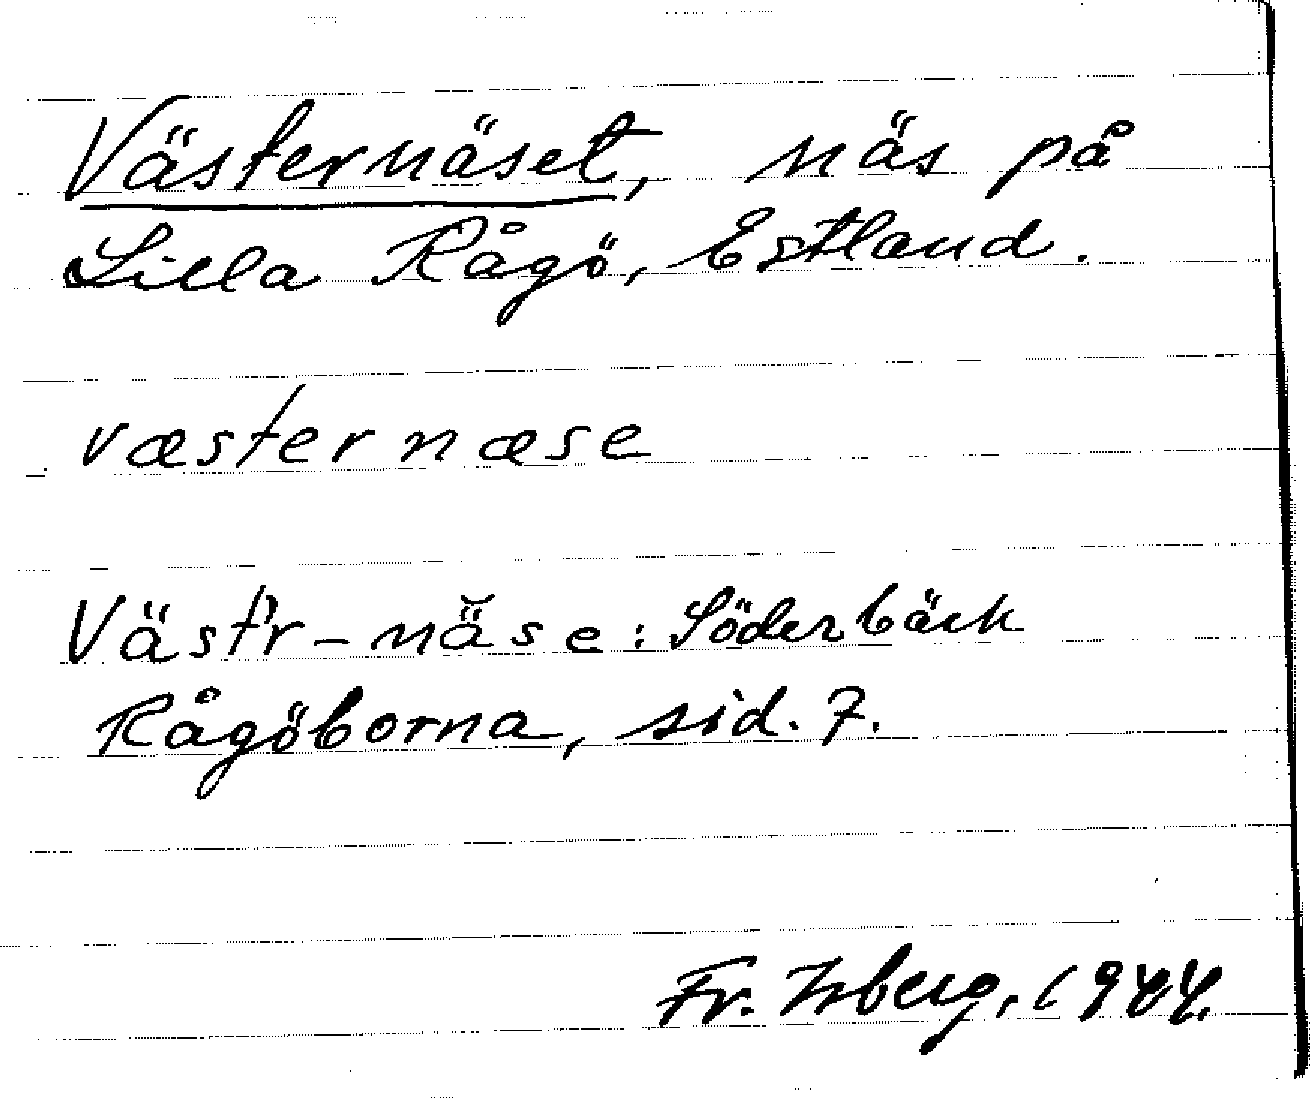 Västernäset, näs på
Lilla Rågö, Estland.
væsternæse
Väst'r-näse: Söderbäck
Rågöborna, sid. 7.
Fr. Isberg, 1944.